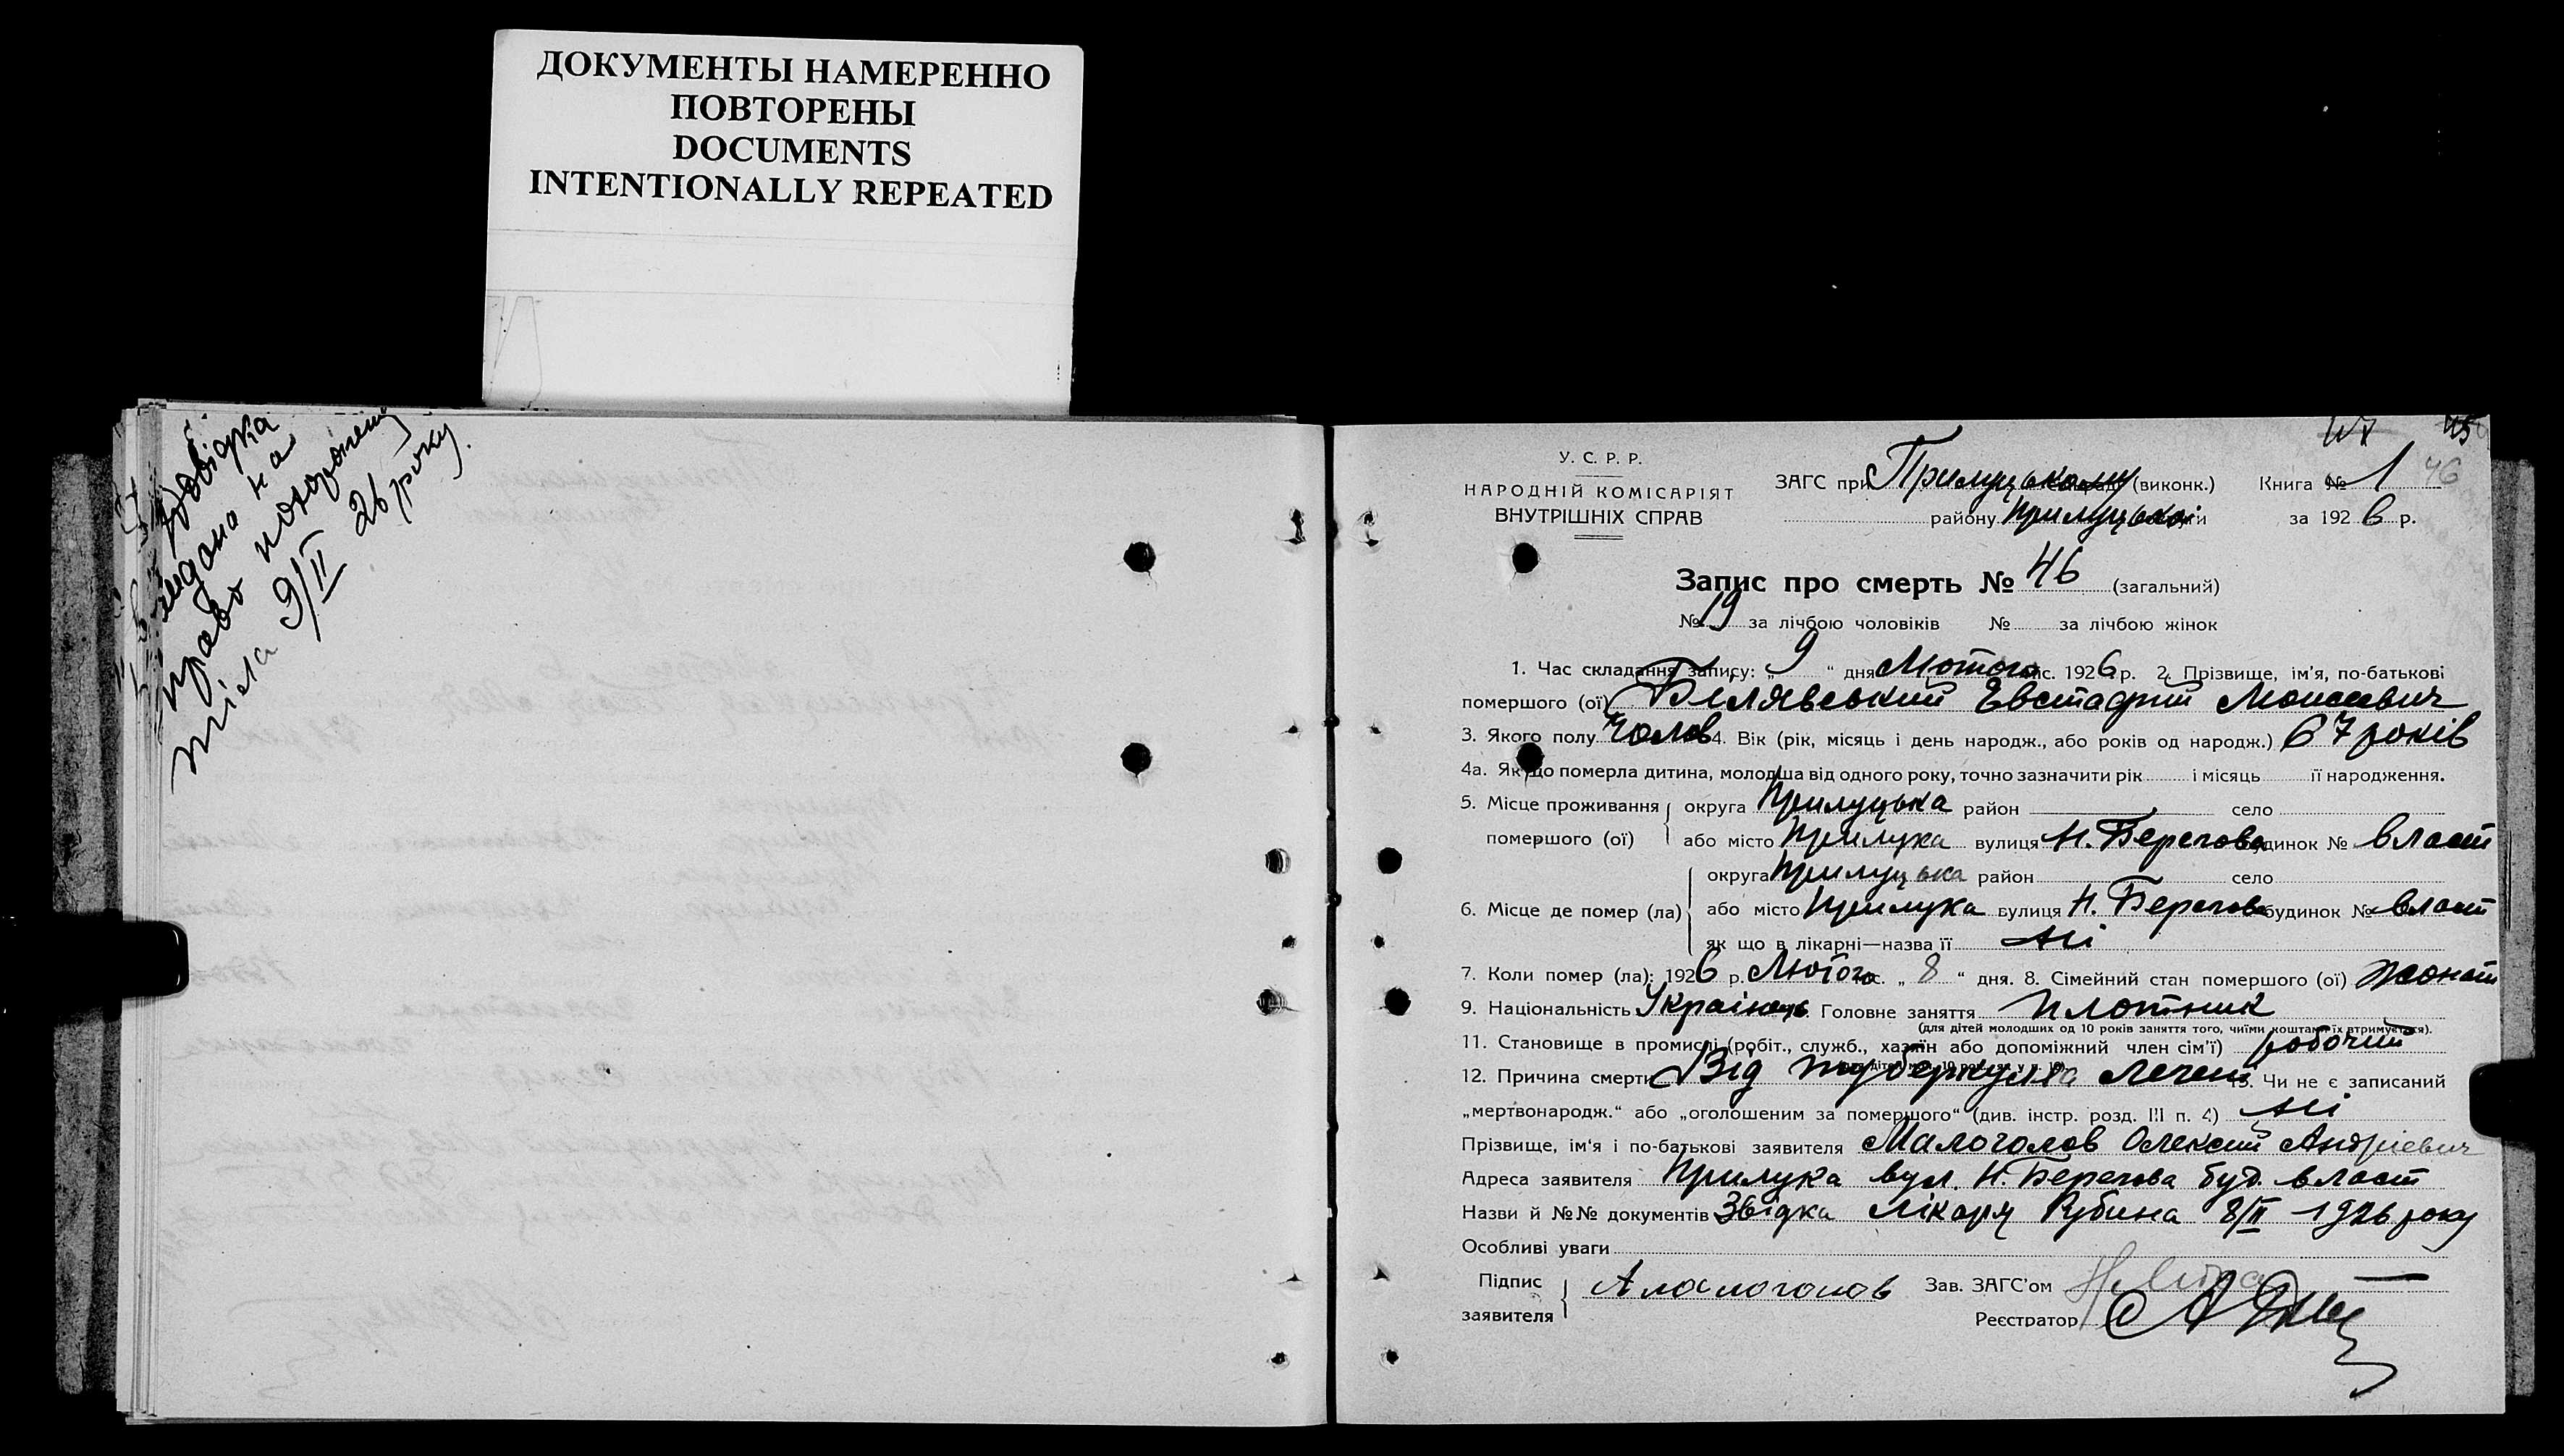 ДОКУМЕНТЫ НАМЕРЕННО
ПОВТОРЕНЫ
DOCUMENTS
INTENTIONALLY REPEATED
Довідка
видана на
право похорону
тіла 9/II 26 року.
45
46
У. С. Р. Р.
НАРОДНІЙ КОМІСАРІЯТ
ВНУТРІШНІХ СПРАВ
ЗАГС при Прилуцькому (виконк.) Книга № 1
району Прилуцької за 1926 р.
Запис про смерть № 46 (загальний)
№ 19 за лічбою чоловіків № за лічбою жінок
1. Час складання запису: „ 9 “ дня Лютого міс. 1926 р. 2. Прізвище, ім'я, по-батькові
помершого (ої) Білявський Евстафій Моисеевич
3. Якого полу Чолов 4. Вік (рік, місяць і день народж., або років од народж.) 67 років
4а. Як що померла дитина, молодша від одного року, точно зазначити рік і місяць її народження.
5. Місце проживання помершого (ої) округа Прилуцька район село
або місто Прилука вулиця Н. Берегова будинок № власт
округа Прилуцька район село
6. Місце де помер (ла) або місто Прилука вулиця Н. Берегов будинок № власт
як що в лікарні—назва її Ні
7. Коли помер (ла): 1926 р. Лютого міс. „ 8 “ дня. 8. Сімейний стан помершого (ої) жонат
9. Національність Українець Головне заняття плотник
(для дітей молодших од 10 років заняття того, чиїми коштами їх втримується).
11. Становище в промислі (робіт., служб., хазяїн або допоміжний член сім'ї) робочий
12. Причина смерти Від туберкульза легень 13. Чи не є записаний
„мертвонародж.“ або „оголошеним за помершого“ (див. інстр. розд. III п. 4) Ні
Прізвище, ім'я і по-батькові заявителя Малоголов Олексий Андріевич
Адреса заявителя Прилука вул. Н. Берегова буд. власт
Назви й №№ документів Звідка лікаря Рубина 8/II 1926 року
Особливі уваги
Підпис заявителя Зав. ЗАГС'ом
Реєстратор